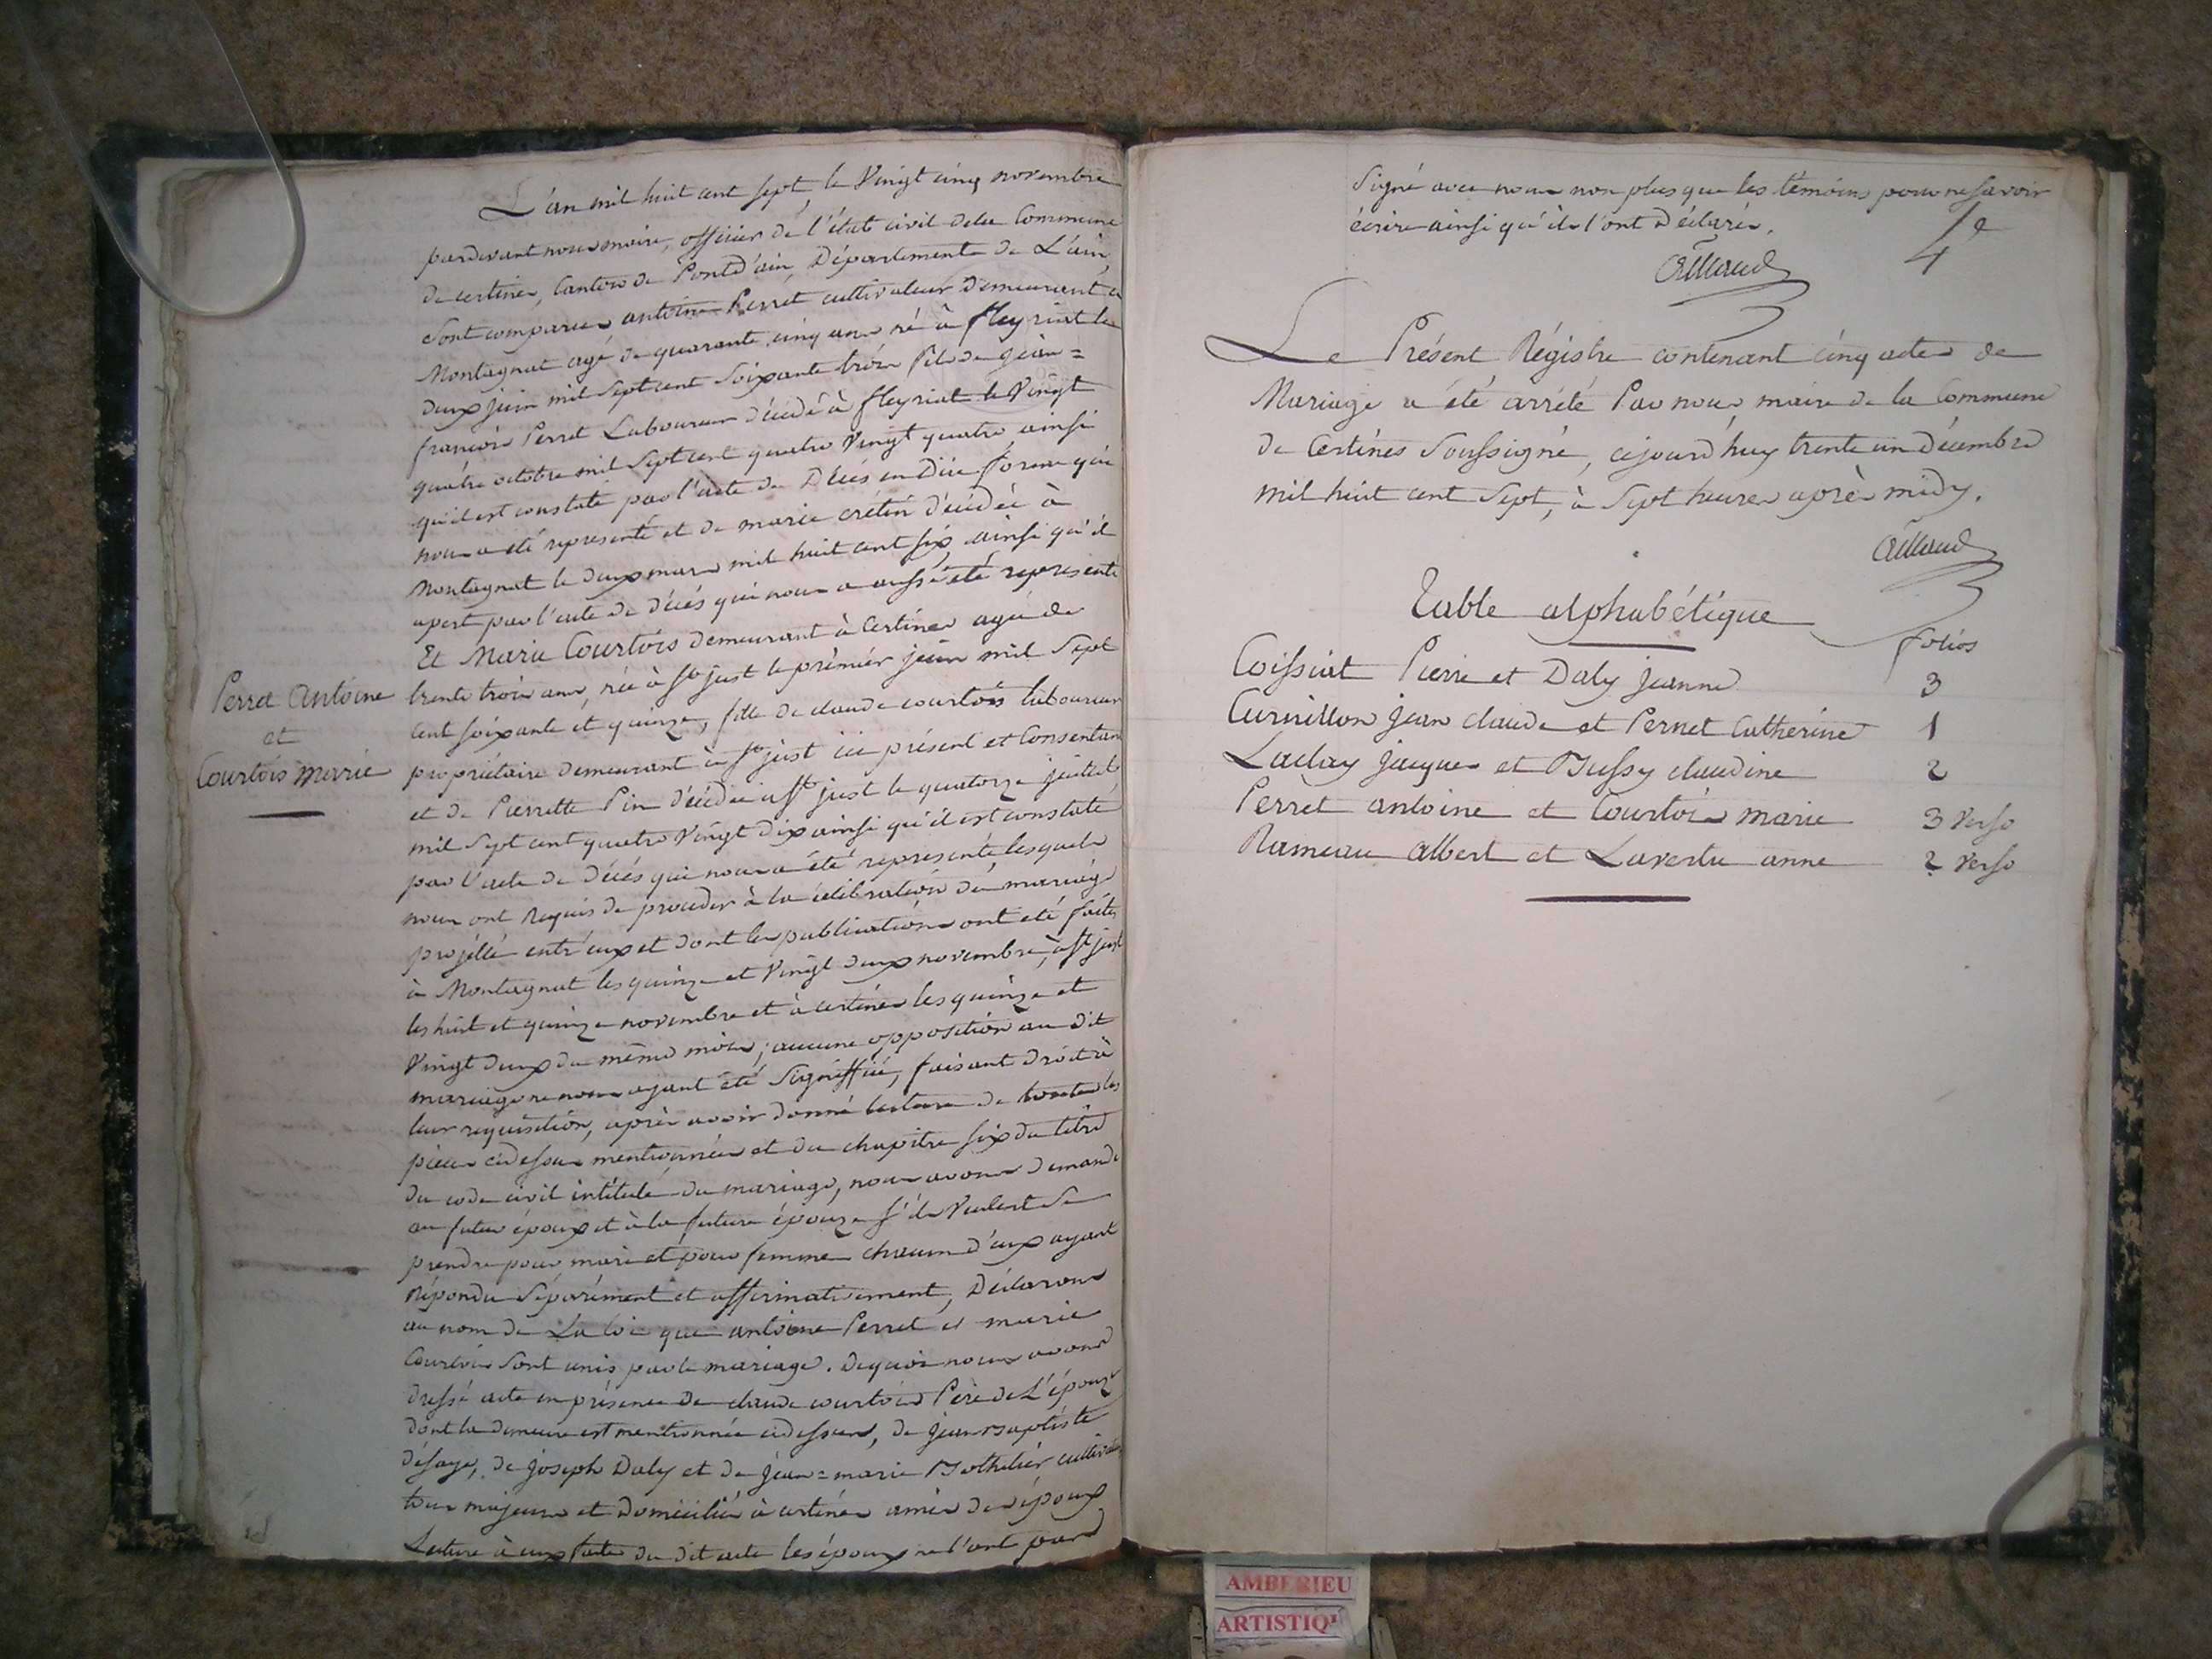 L'an mil huit cent sept, le Vingt cinq novembre
pardevant nous maire, officier de l'état civil dela Commune
de certines, Canton de Pontd'ain, Département de L'ain,
Sont comparus antoine Perret cultivateur Demeurant à
Montagnat agé de quarante cinq ans né à fleyriat le
Deux juin mil Sept cent Soixante trois fils de jean=
françois Perret Laboureur décédé à fleyriat le Vingt
quatre octobre mil Sept cent quatre Vingt quatre ainsi
qu'il est constaté par l'acte de Décès en Due forme qui
nous a été représenté et de marie crétin décédée à
Montagnat le deux mars mil huit cent six ainsi qu'il
apert par l'acte de décès qui nous a aussi été représenté
Et Marie Courtois demeurant à Certines agée de
trente trois ans, née à St just le prémier juin mil Sept
cent soixante et quinze, fille de claude courtois laboureur
propriétaire demeurant à St just ici présent et Consentant
et de Pierrette Pin décédée à St just le quatorze juillet
mil Sept cent quatre Vingt dix ainsi qu'il est constaté
par l'acte de décès qui nous a été représenté lesquels
nous ont Requis de procéder à la célébration du mariage
projetté entr'eux et dont les publications ont été faites
à Montagnat les quinze et Vingt deux novembre, à St just
les huit et quinze novembre et à certines les quinze et
Vingt deux du même mois; aucune opposition au dit
mariage ne nous ayant été Signiffiée, faisant droit à
leur requisition, après avoir donné lecture de toutes les
pièces cidessus mentionnées et du chapitre six du titre
du code civil intitulé du mariage, nous avons demandé
au futur époux et à la future épouze s'ils Veulent se
prendre pour mari et pour femme chacun d'eux ayant
Répondu Séparément et affirmativement, Déclarons
au nom de La loi que antoine Perret et marie
Courtois Sont unis par le mariage. Dequoi nous avons
dressé acte en présence de claude courtois Père de L'épouze
dont la demeure est mentionnée cidessus, de jean Baptiste
désaye, de joseph Daly et de jean=marie Mothilier
tous majeurs et Domiciliés à certines amis des époux
Lecture à eux faite du dit acte les époux ne l'ont pas
Perret Antoine
et
Courtois marie
Signé avec nous non plus que les témoins pour ne Savoir
écrire ainsi qu'ils l'ont Déclarés.
4e
Le Présent Régistre contenant cinq actes de
Mariage a été arrété Par nous maire de la Commune
de Certines Soussigné, cejourd'huy trente un décembre
mil huit cent Sept, à Sept heures après midy.
Table alphabétique
folios
Coissiat Pierre et Daly jeanne 3
Curnillon jean claude et Pernet Catherine 1
Laclay jacques et Bussy claudine 2
Perret antoine et Courtois marie 3 Verso
Rameau albert et Lavertu anne 2 Verso
AMBERIEU
ARTISTIQ